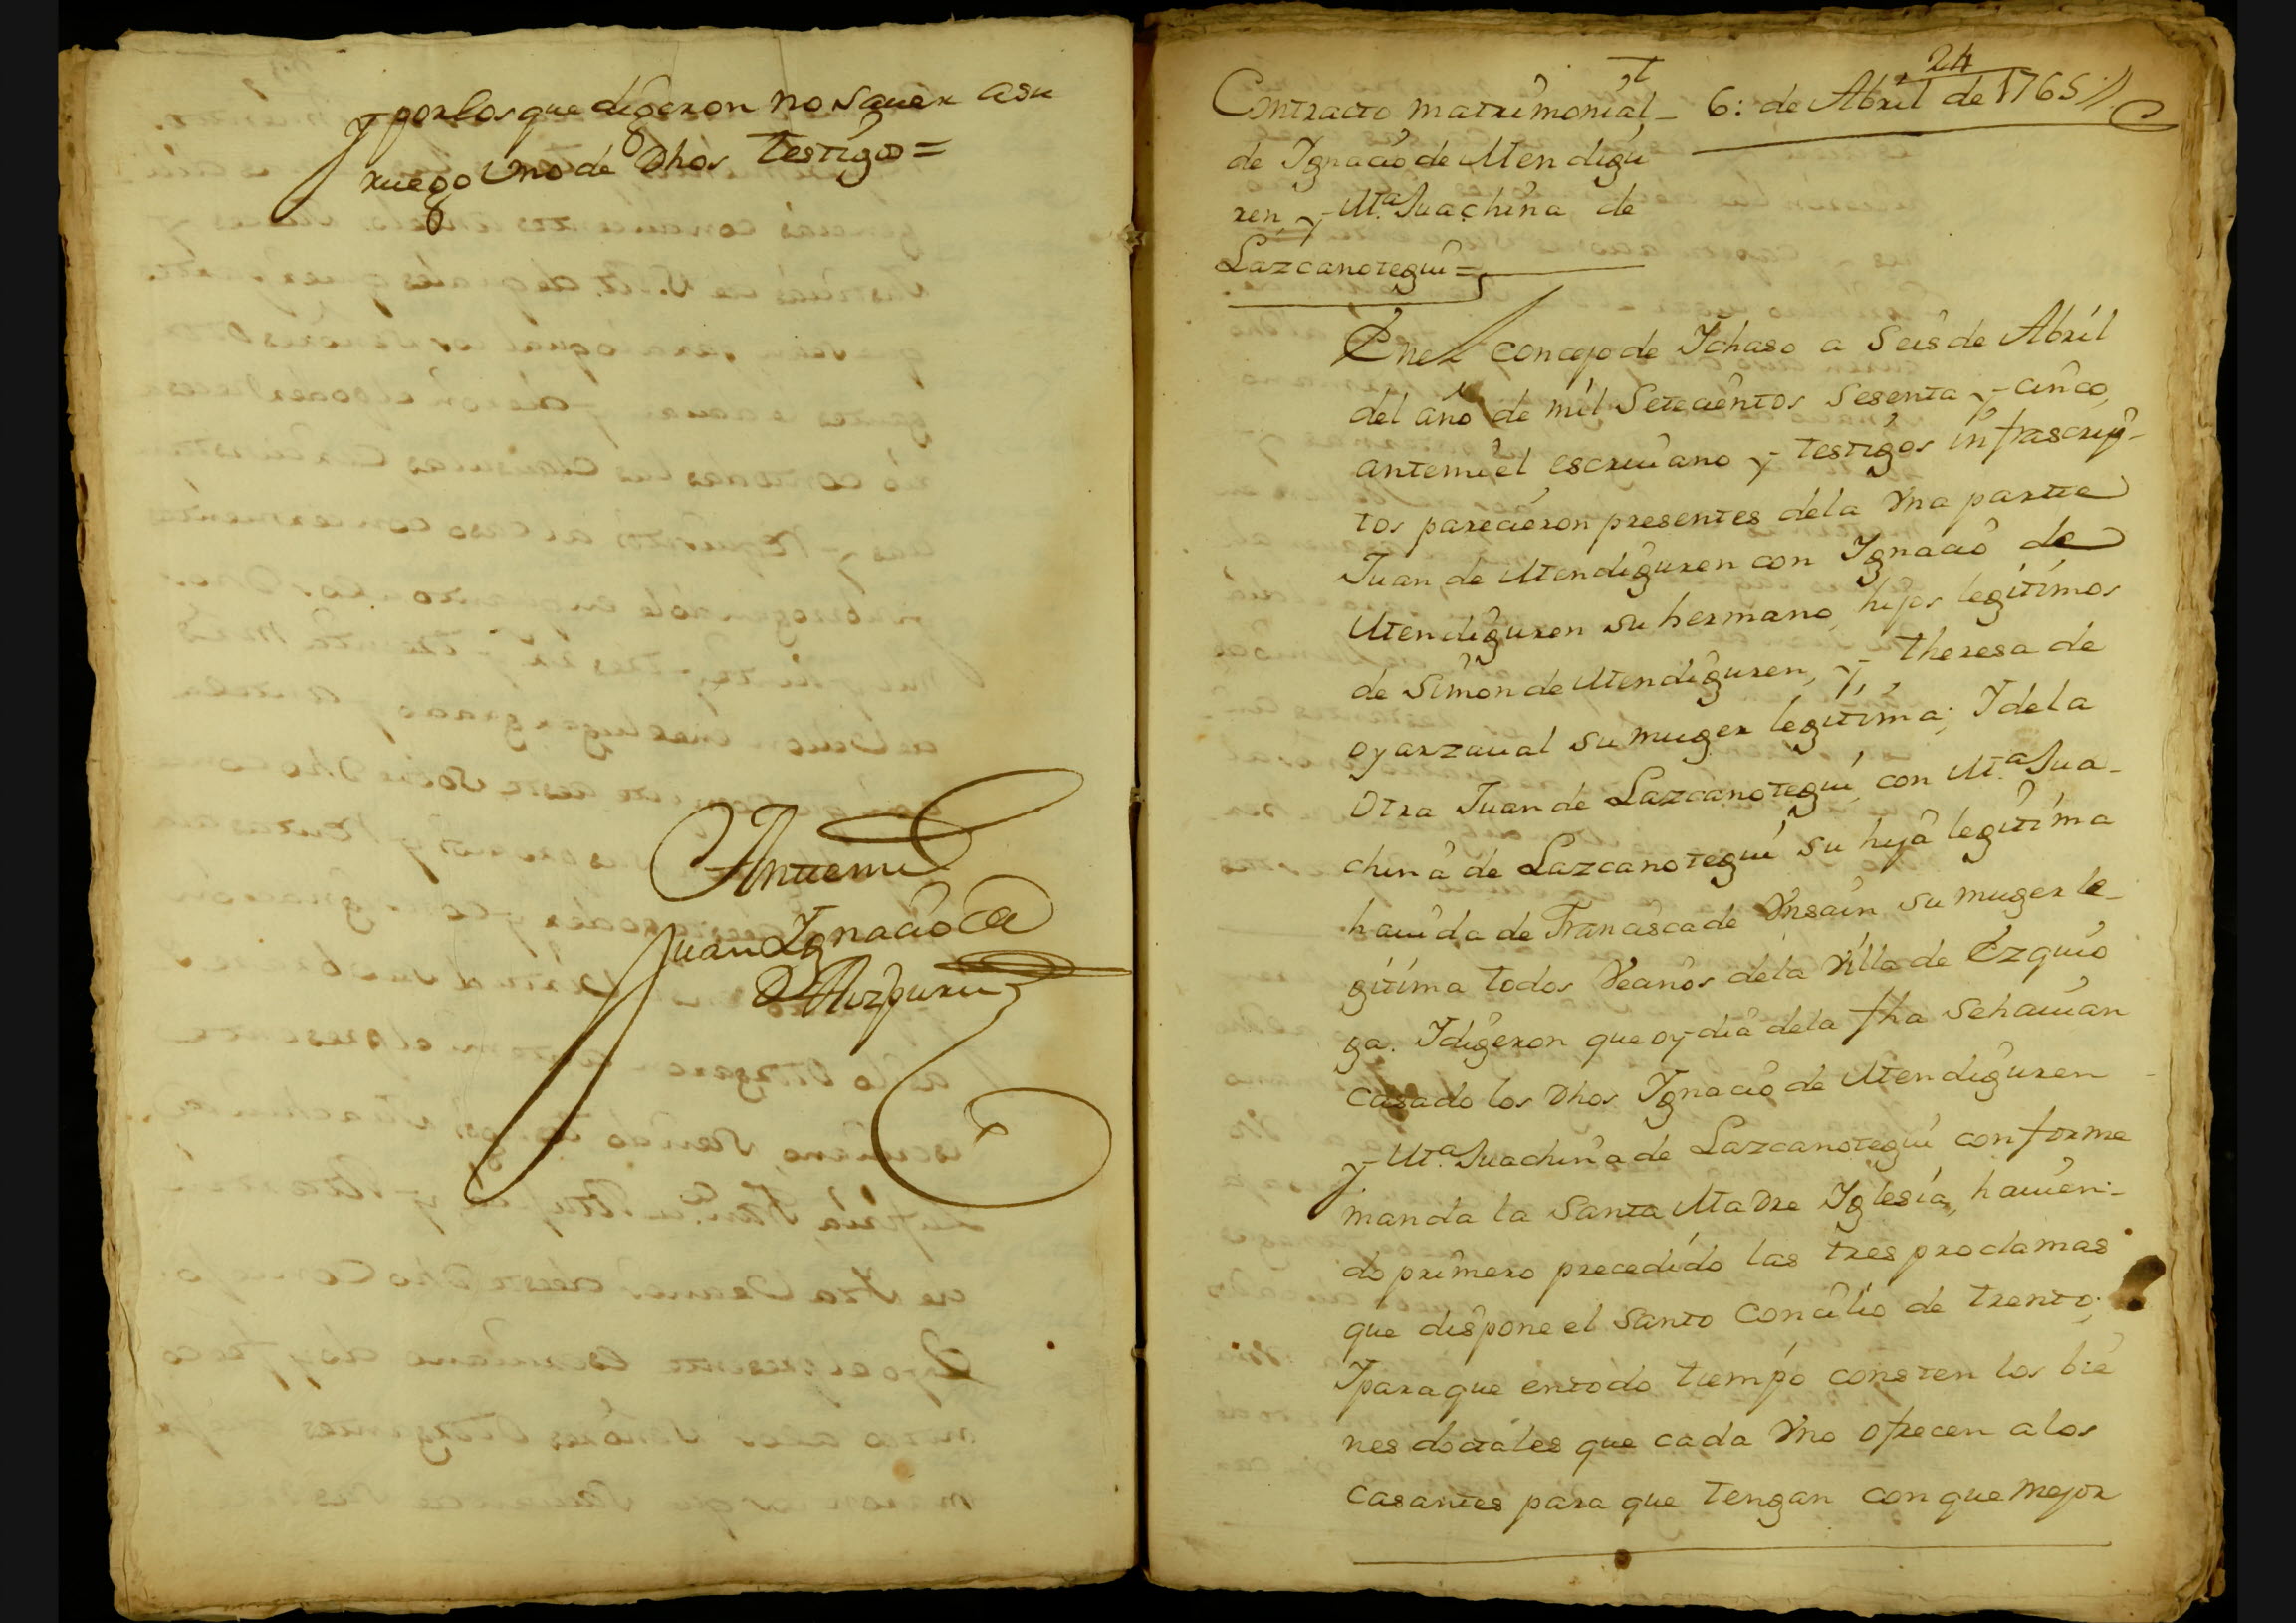 y por los que digeron no saver a su
ruego Uno de Dhos testigos =
Antemi
Juan Ignacio de
Aizpuru
24
t
Contracto matrimonial _ 6: de Abril de 1765 //.
de Ignacio de Mendigu
ren y M.a Juachina de
Lazcanotegui =
En el concejo de Ichaso a Seis de Abril
del año de mil Setecientos Sesenta y cinco,
antemi el escrivano y testigos infrascrip-
tos parecieron presentes dela Vna partte
Juan de Mendiguren con Ignacio de
Mendiguren su hermano, hijos legitimos
de Simon de Mendiguren, y, theresa de
oyarzaval su muger legitima; Y dela
Otra Juan de Lazcanotegui, con M.a Jua-
china de Lazcanotegui su hija legitima
havida de Francisca de Ynsain su muger le-
gitima todos Vecinos dela Villa de Ezquio
ga. Y digeron que oy dia dela fha se havian
casado los Dhos Ignacio de Mendiguren
y M.a Juachina de Lazcanotegui conforme
manda la Santa Madre Iglesia, havien-
do primero precedido las tres proclamas
que dispone el Santo Concilio de trento;
Y para que en todo tiempo consten los bie
nes dotales que cada Vno ofrecen a los
Casantes para que tengan con que mejor